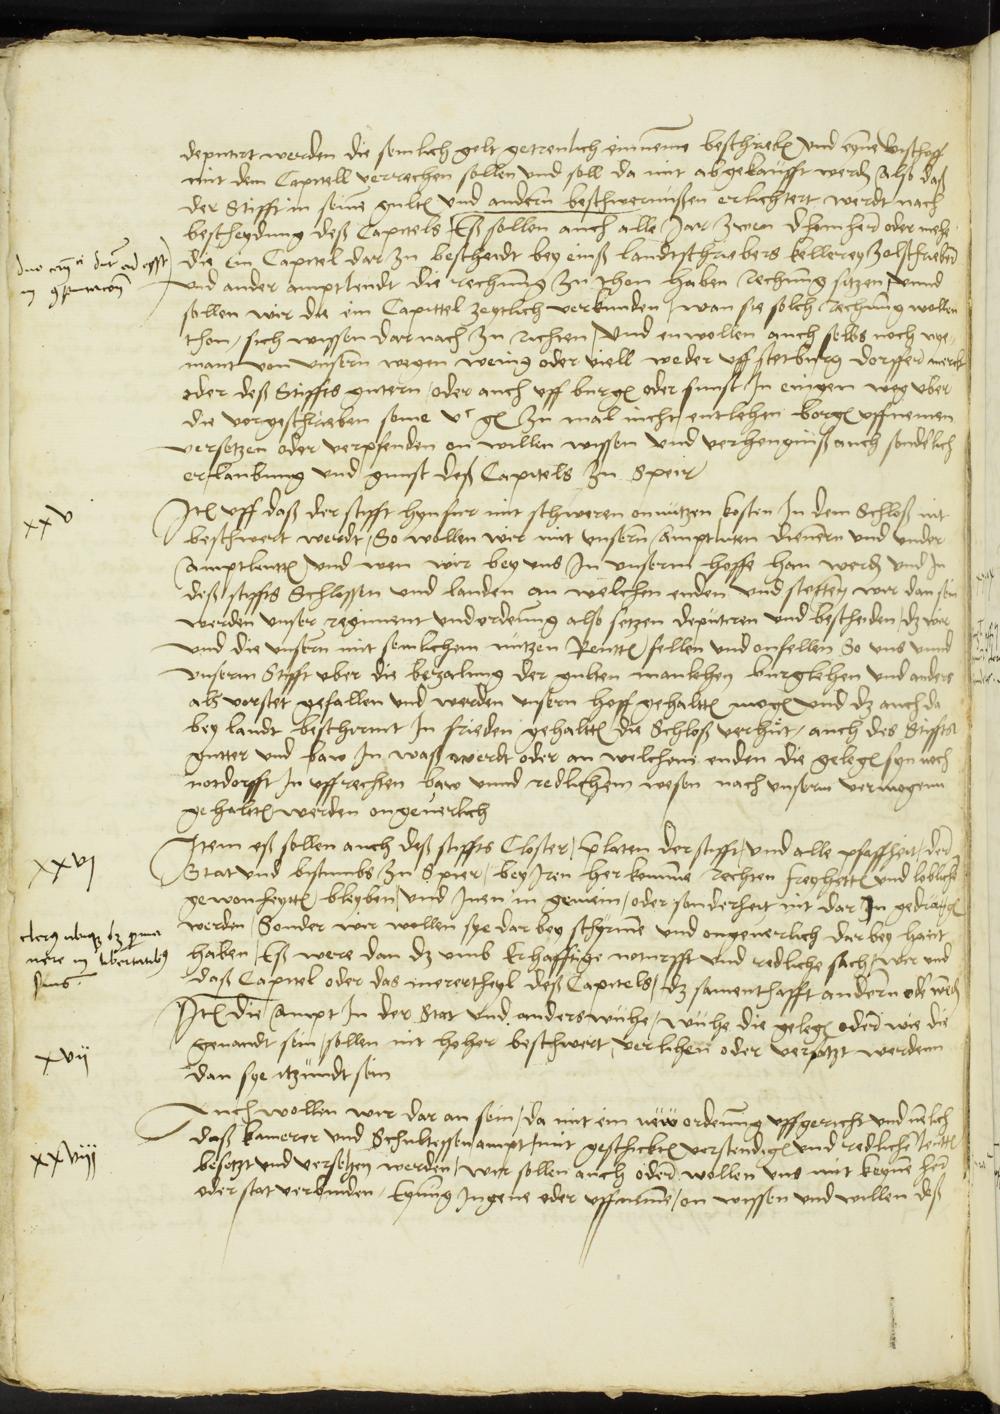 deputirt werden die semlich gelt getreulich einnemen beschrieben und eyne Bischoff
mit dem Capitell verrechen sollen und soll da mit abgekaufft werden also daß
der Stifft in seine gulten und andern beschwernußen erlichtert werdt nach
bescheydung deß Capitels Eß sollen auch alle Jar zwen dhomhern oder mehe
die ein Capitel dar zu bescheidt bey einß landtschriebers kellerey zolschrieber
und ander amptleudt die rechnung zu thon haben rechnung sitzen unnd
sollen wir die ein Capittel zeytlich verkunden wan sie solch rechnung wollen
thon sich wissen dar nach zu richten Und enwollen auch selbs noch nye-
mant von unsern wegen wenig oder viell weder uff stet burg dorffer
oder deß Stiffts gutern oder auch uff burgen oder sunst In einigen weg uber
die vorgeschrieben some zu mal nicht entlehen borgen uffnemen
versetzen oder verpfenden on willen wissen und verhengniß auch sonderlich
erlaubung und gunst deß Capitels zu Speir
xxv
Item uff daß der stifft hynfur mit schweren onnutzen kosten In dem Schloß nit
beschwert werdt So wollen wir mit unsern Amptluten dienern und under
Amptleutten und wen wir bey uns In unserm hoffe han werden und In
deß stiffts Schlossen und landen an welchen enden und stetten wir dan sin
werden unser regiment und ordenung also setzen deputiren und bescheiden dz wir
und die unsern mit semlichem nutzen Rentten fellen und onfellen So uns unnd
unserm Stifft uber die bezalung der gulten manlehen burglehen und anders
als vorstet gefallen und werden unsern hoff gehalten mogen und dz auch da
bey landt beschirmt In frieden gehalten die Schloß verhut auch des Stiffts
gutter und baw In waß werdt oder an welchem enden die gelegen syn noch
notdorfft In uffrechten baw unnd redlichem wesen nach unserm vermogenn
gehalten werden ongeverlich
xxvj
Item eß sollen auch deß stiffts Closter prelaten der stifft und alle pfaffheit der
Stat und bistumbs zu Spier bey Iren herkommen rechten freyheiten und lobliche
gewonheytten bleyben und Inen in gemein oder sonderheit nit dar In gedrangen
werden Sonder wir wollen sye dar bey schyrme und ongeverlich dar bey hant
haben Eß were dan dz umb Erhafftige notturfft und redliche sach wir und
daß Capitel oder das merertheyl deß Capitels dz samenthafft andern oder werden
xvij
Item die Ampt In der Stat und anderswuhe wuhe die gelegen oder wie die
genandt sein sollen nit hoher beschwert verlihen oder versatzt werdenn
dan sye itzundt sein
xxviij
Auch wollen wir dar an sein da mit ein new ordenung uffgericht und
daß kamerer und Schultessen ampt mit geschickten verstendigen und redlichen leuten
besetzt und versehen werden wir sollen auch oder wollen uns mit keyne hern
oder stat verbinden Eynung Ingene oder uffnemme on wissen und willen deß